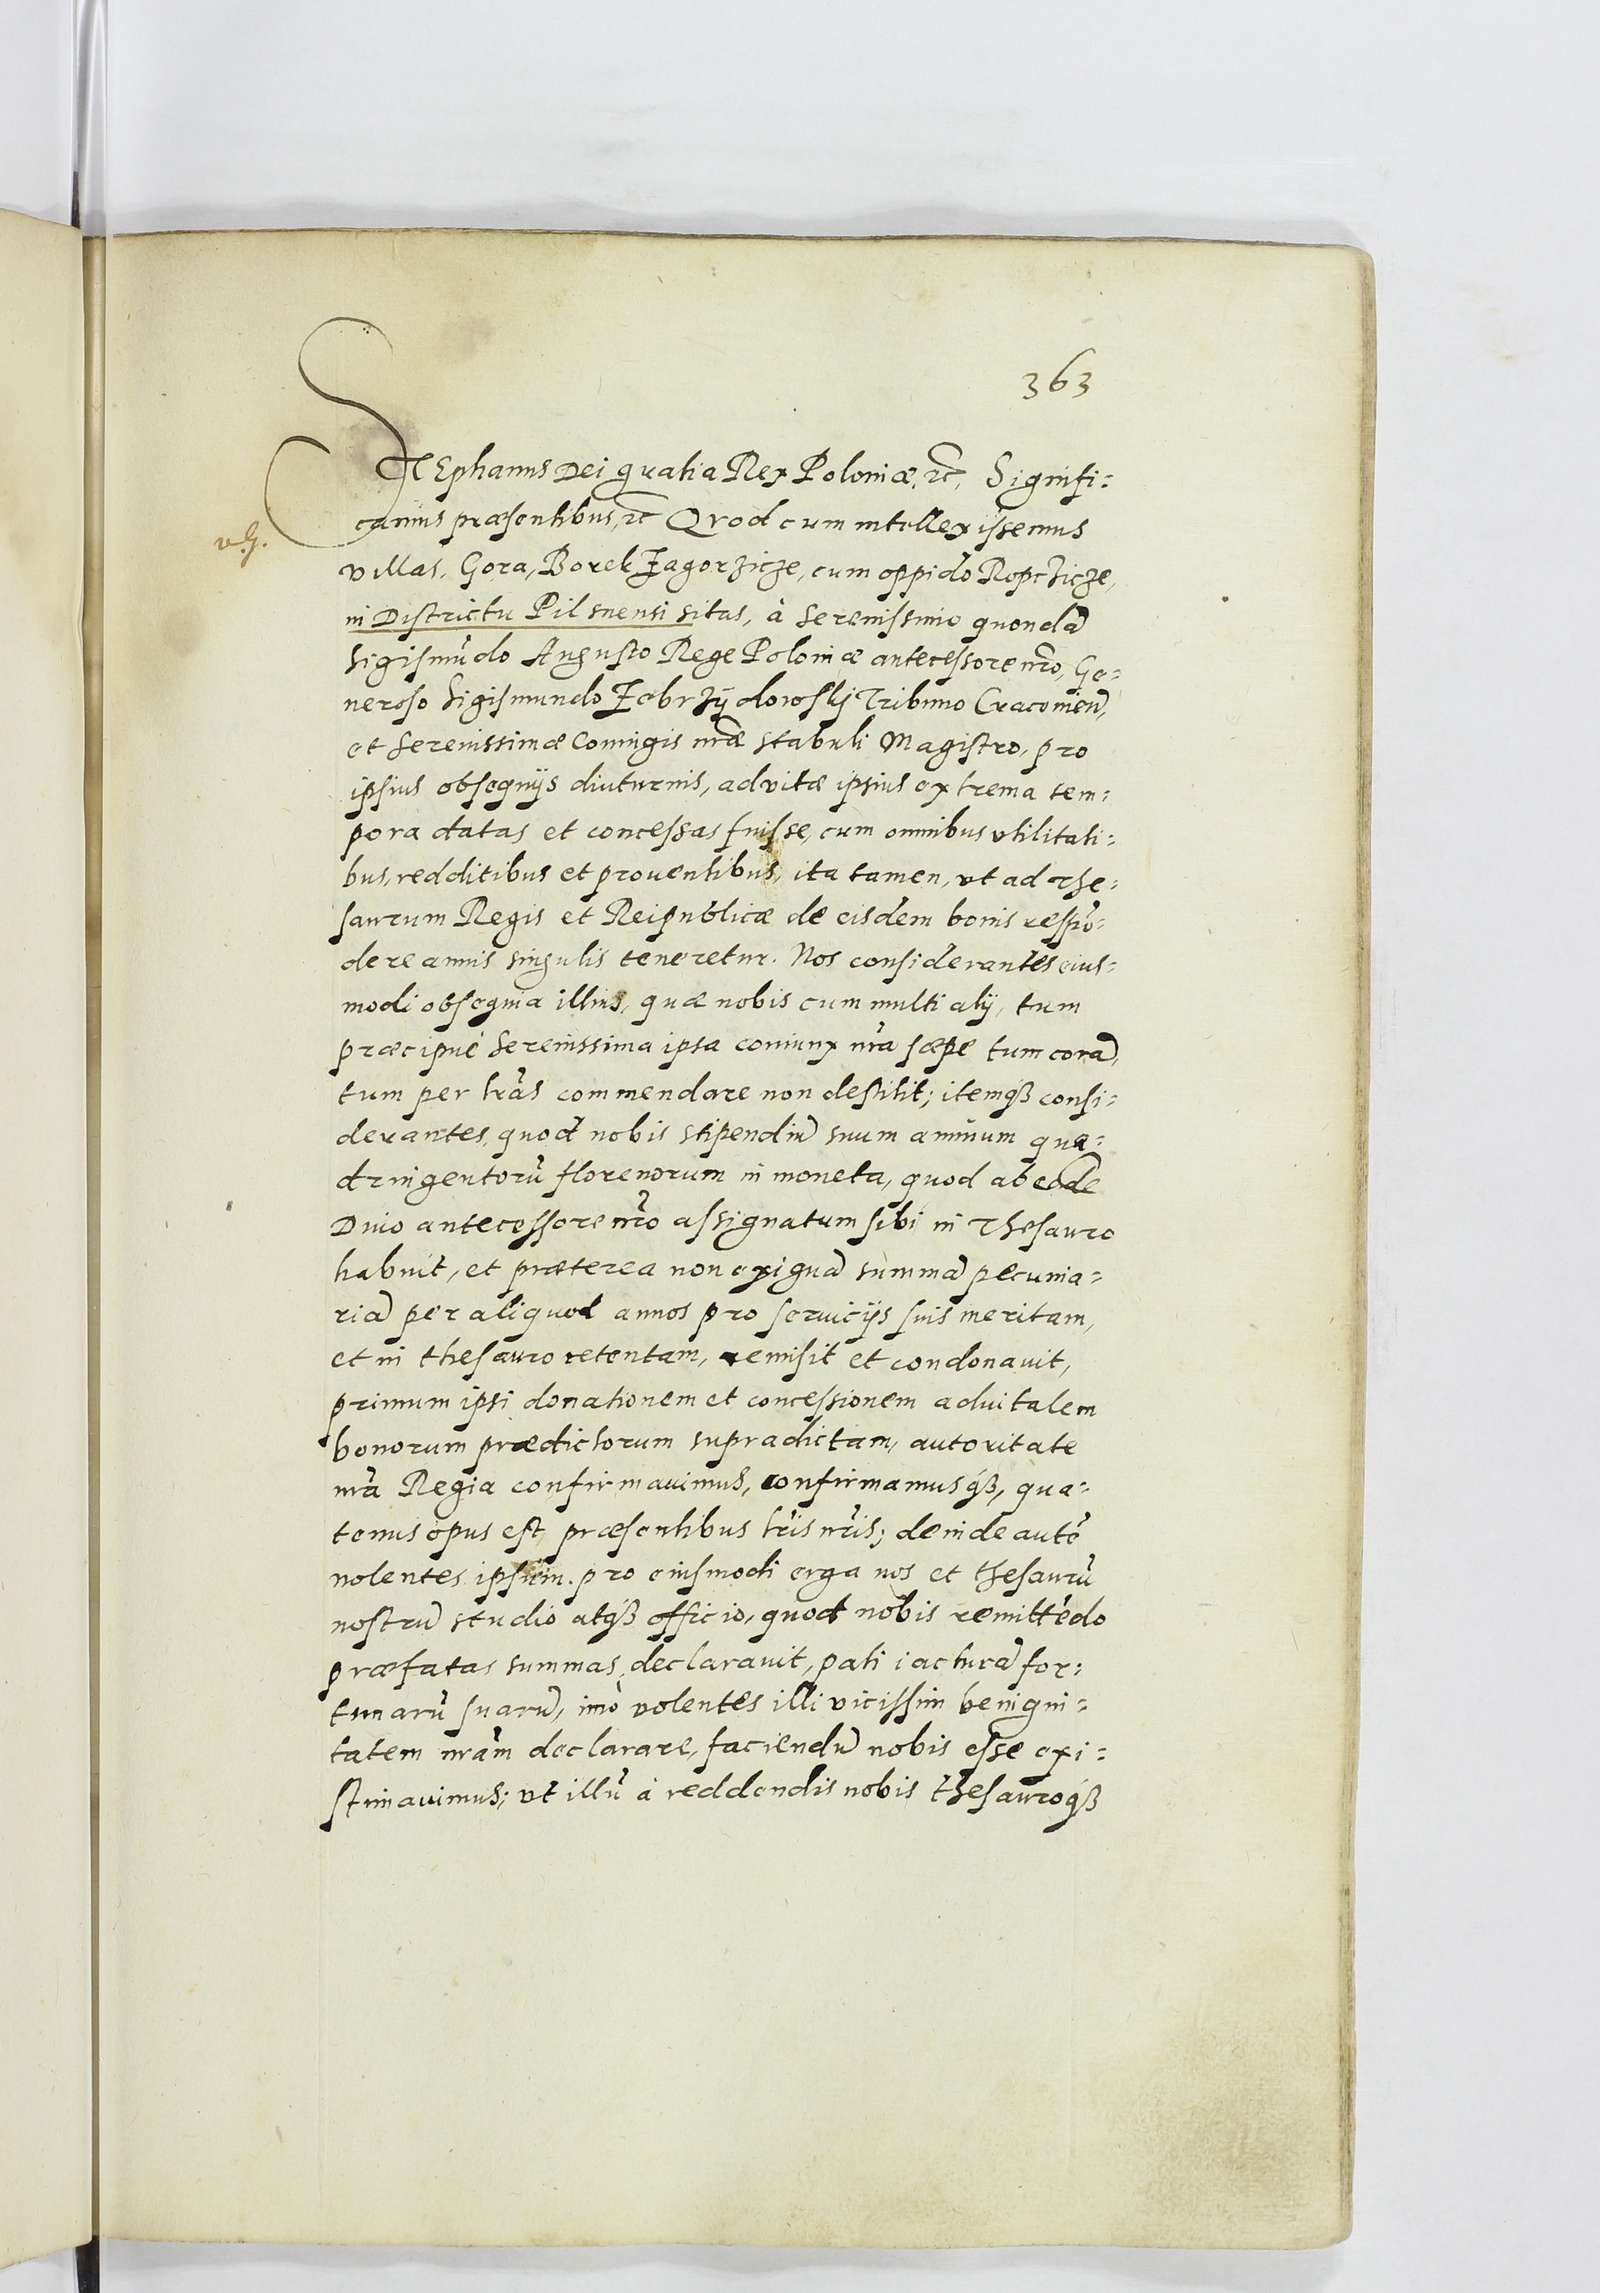 363
STEphanus Dei gratia Rex Poloniæ, etc, Signifi-
camus præsentibus, etc Quod cum intellexissemus
villas, Gora, Borek Zagorzicze, cum oppido Ropczicze,
in Districtu Pilsnensi sitas, à Serenissimo quondã
Sigismũdo Augusto Rege Poloniæ antecessore nr̃o, Ge-
neroso Sigismundo Zebrzÿdowskÿ Tribuno Cracovieñ,
et Serenissimæ Coniugis nr̃æ stabuli Magistro, pro
ipsius obsequijs diuturnis, ad vitæ ipsius extrema tem-
pora datas et concessas fuisse, cum omnibus vtilitati-
bus, redditibus et prouentibus, ita tamen, vt ad The-
saurum Regis et Reipublicæ de eisdem bonis respõ-
dere annis singulis teneretur. Nos considerantes eius-
modi obsequia illius, quæ nobis cum multi alij, tum
præcipué Serenissima ipsa coniunx nr̃a sæpe tum corã,
tum per lr̃as commendare non destitit; itemq́ꝫ consi-
derantes, quod nobis stipendiũ suum annuum qua-
dringentorũ florenorum in moneta, quod ab eodẽ
Diuo antecessore nr̃o assignatum sibi in Thesauro
habuit, et præterea non exiguã summã pecunia-
riã per aliquod annos pro seruicijs suis meritam,
et in thesauro retentam, remisit et condonauit,
primum ipsi donationem et concessionem aduitalem
bonorum prædictorum supradictam, autoritate
nr̃a Regia confirmauimus, confirmamusq́ꝫ, qua-
tenus opus est, præsentibus lr̃is nr̃is; deinde autẽ
nolentes ipsum pro eiusmodi erga nos et thesaurũ
nostrũ studio atq́ꝫ officio, quod nobis remittẽdo
præfatas summas declarauit, pati iacturã for-
tunarũ suarũ, imò volentes illi vicissim benigni-
tatem nr̃am declarare, faciendũ nobis esse exi-
stimauimus; vt illũ à reddendis nobis thesauroq́ꝫ